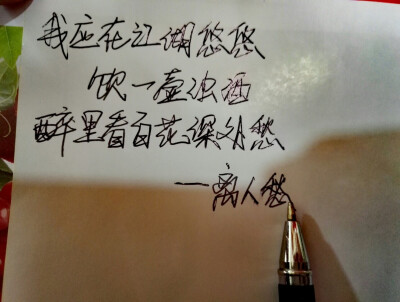 我应在江湖悠悠
饮一壶浊酒
醉里看百花深处愁
一离人愁